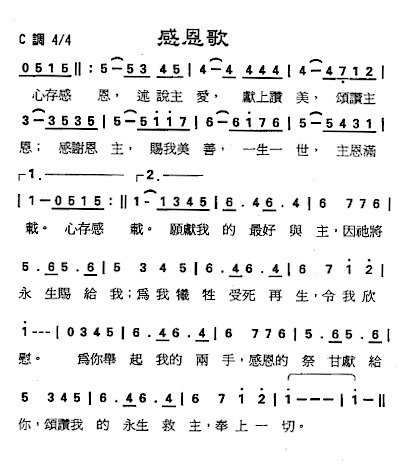 C 調 4/4 感恩歌
0 5 1 5 ‖: 5–5–53 45 | 4–4–4 444 | 4–4–4 7̣ 1 2 |
心存感 恩， 述說主 愛， 獻上讚 美， 頌讚主
3–3–3 5 3 5 | 5–5–5 i i 7 | 6–6–6 i 7 6 | 5–5–5 4 3 1 |
恩； 感謝恩 主， 賜我美 善， 一生一 世， 主恩滿
1. 2.
| 1–0 5 1 5 :‖ 1–1 3 4 5 | 6 . 4 6 . 4 | 6 7 7 6 |
載。 心存感 載。願獻我 的 最好 與 主，因祂將
5 . 6 5 . 6 | 5 3 4 5 | 6 . 4 6 . 4 | 6 7 i 2̇ |
永 生賜 給 我；為我 犧 牲 受死 再 生，令 我 欣
i––– | 0 3 4 5 | 6 . 4 6 . 4 | 6 7 7 6 | 5 . 6 5 . 6 |
慰。 為你舉 起 我的 兩 手，感恩的 祭 甘獻 給
5 3 4 5 | 6 . 4 6 . 4 | 6 7 i 2̇ | i––– | i–‖
你，頌讚我 的 永生 救 主，奉 上 一 切。